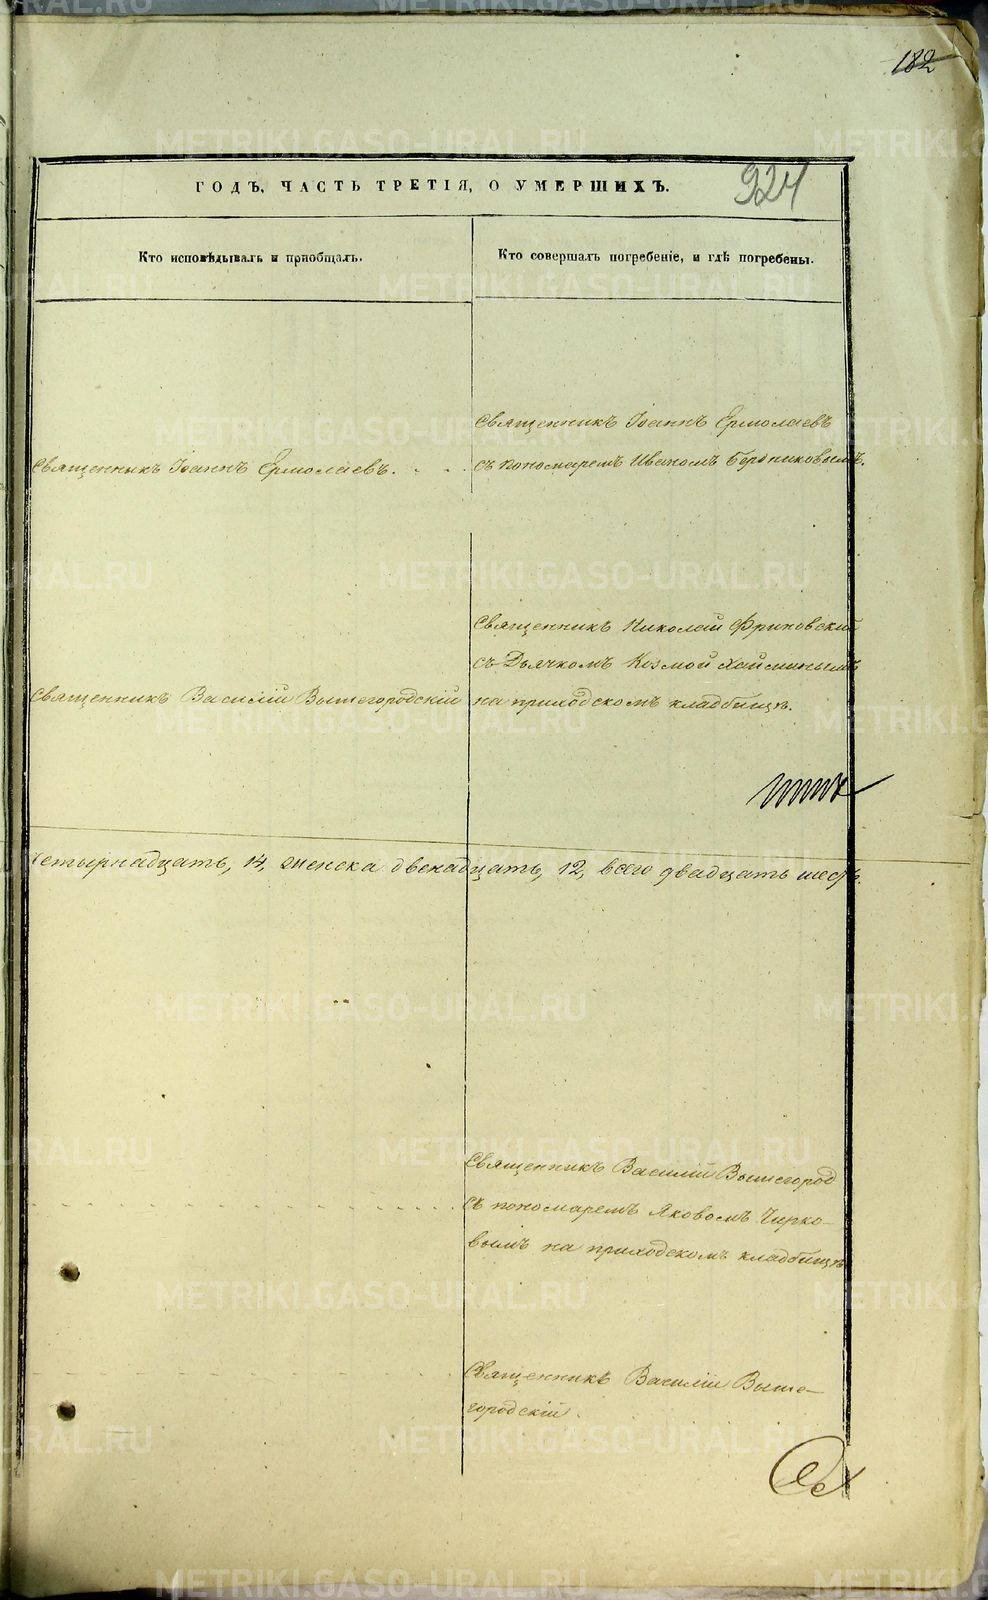 182
924
ГОДЪ, ЧАСТЬ ТРЕТІЯ, О УМЕРШИХЪ.
Кто исповѣдывалъ и пріобщалъ.
Кто совершалъ погребеніе, и гдѣ погребены.
Священникъ Іоаннъ Ермолаевъ.
Священникъ Іоаннъ Ермолаевъ
съ пономаремъ Иваномъ
Священникъ Василій Вышегородскій
Священникъ Николай
съ Дьячкомъ Козмой
на приходскомъ кладбищѣ.
четырнадцать, 14, женска двенадцать, 12, всего двадцать шесть.
Священникъ Василій Вышегород
съ пономаремъ Яковомъ Чирко-
вымъ на приходскомъ кладбищѣ
Священникъ Василій Выше-
городскій.
METRIKI.GASO-URAL.RU